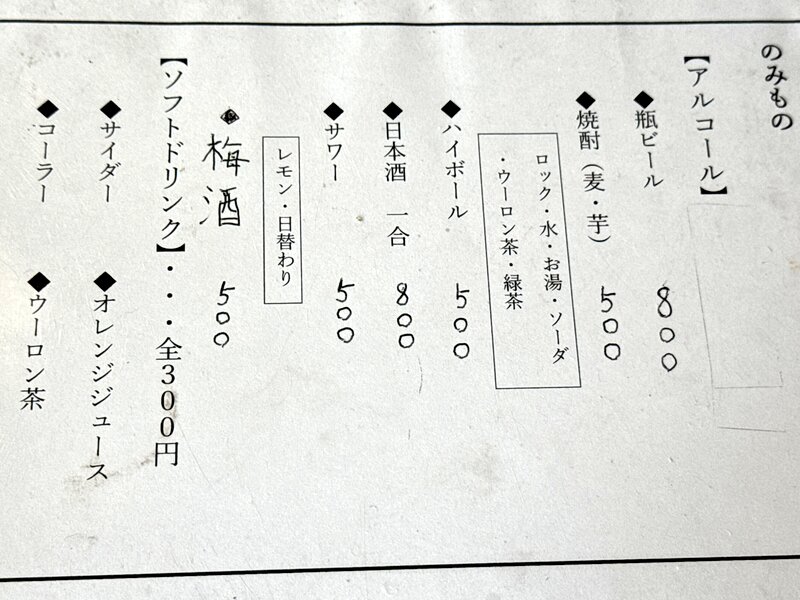 のみもの
【アルコール】
◆瓶ビール 800
◆焼酎（麦・芋） 500
ロック・水・お湯・ソーダ
・ウーロン茶・緑茶
◆ハイボール 500
◆日本酒 一合 800
◆サワー 500
レモン・日替わり
◆梅酒 500
【ソフトドリンク】・・・全300円
◆サイダー ◆オレンジジュース
◆コーラー ◆ウーロン茶